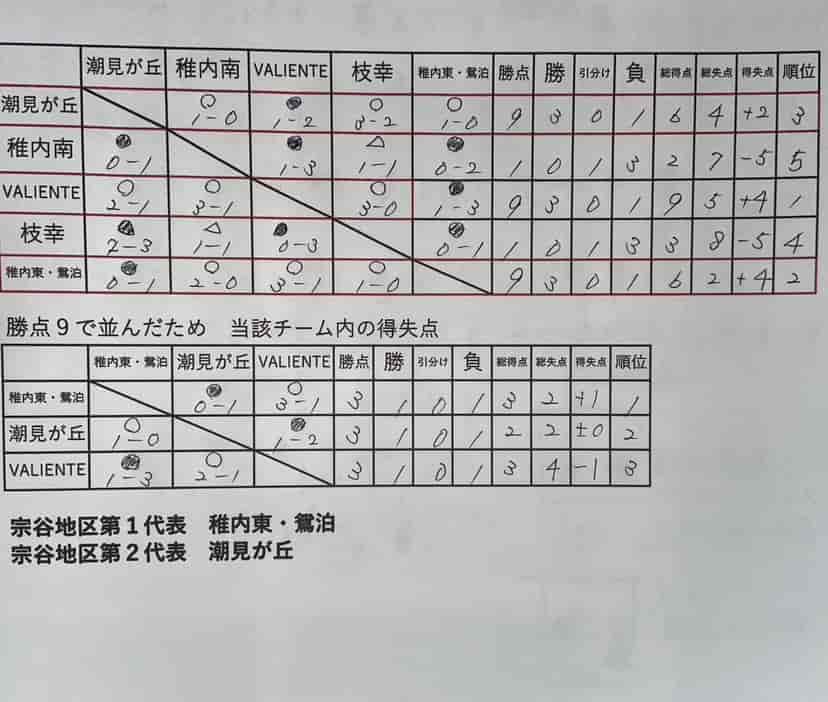 潮見が丘 稚内南 VALIENTE 枝幸 稚内東・鴛泊 勝点 勝 引分け 負 総得点 総失点 得失点 順位
潮見が丘 ○ 1-0 ● 1-2 ○ 3-2 ○ 1-0 9 3 0 1 6 4 +2 3
稚内南 ● 0-1 ● 1-3 △ 1-1 ● 0-2 1 0 1 3 2 7 -5 5
VALIENTE ○ 2-1 ○ 3-1 ○ 3-0 ● 1-3 9 3 0 1 9 5 +4 1
枝幸 ● 2-3 △ 1-1 ● 0-3 ● 0-1 1 0 1 3 3 8 -5 4
稚内東・鴛泊 ● 0-1 ○ 2-0 ○ 3-1 ○ 1-0 9 3 0 1 6 2 +4 2
勝点9で並んだため 当該チーム内の得失点
稚内東・鴛泊 潮見が丘 VALIENTE 勝点 勝 引分け 負 総得点 総失点 得失点 順位
稚内東・鴛泊 ● 0-1 ○ 3-1 3 1 0 1 3 2 +1 1
潮見が丘 ○ 1-0 ● 1-2 3 1 0 1 2 2 ±0 2
VALIENTE ● 1-3 ○ 2-1 3 1 0 1 3 4 -1 3
宗谷地区第1代表 稚内東・鴛泊
宗谷地区第2代表 潮見が丘